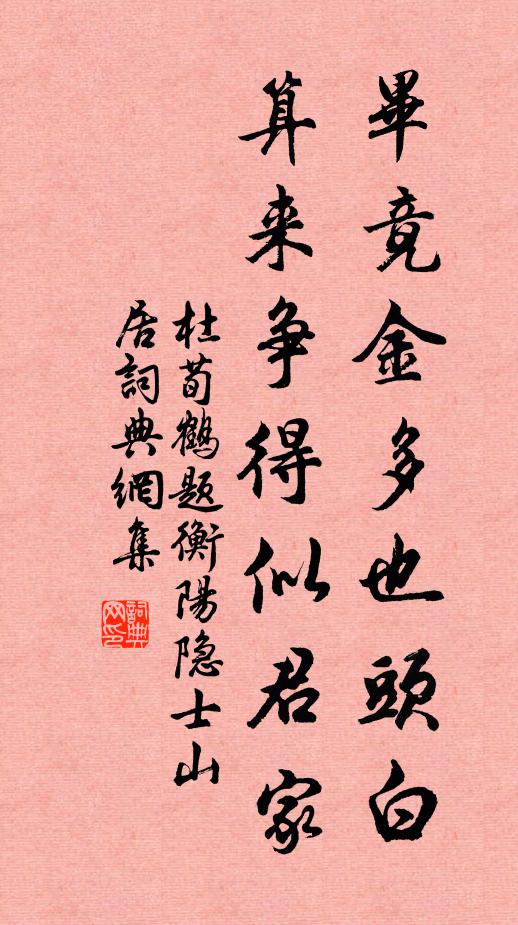 畢竟金多也頭白
算来爭得似君家
杜荀鶴题衡陽隐士山
居詞典網集
詞典網印